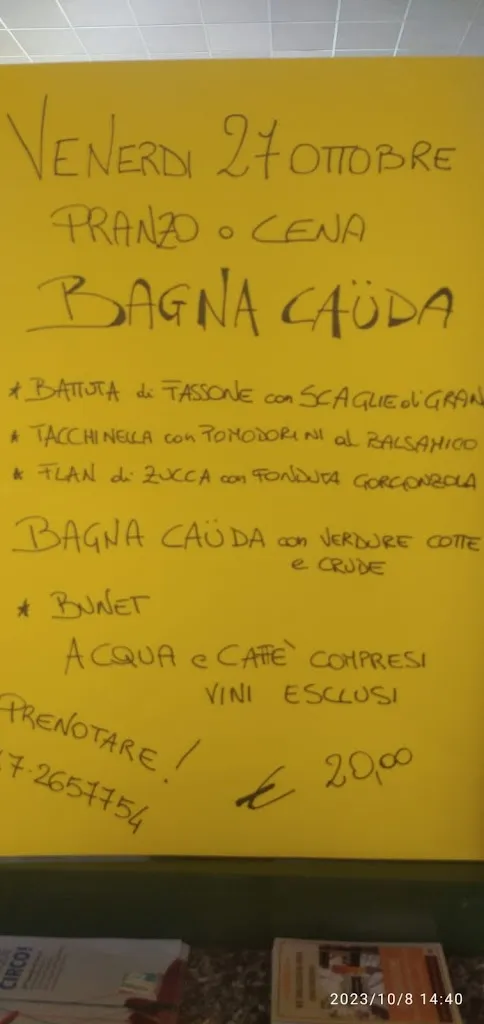 VENERDI 27 OTTOBRE
PRANZO o CENA
BAGNA CAÜDA
* BATTUTA di FASSONE con SCAGLIE di GRAN
* TACCHINELLA con POMODORINI al BALSAMICO
* FLAN di ZUCCA con FONDUTA GORGONZOLA
BAGNA CAÜDA con VERDURE COTTE
e CRUDE
* BUNET
ACQUA e CAFFÈ COMPRESI
VINI ESCLUSI
PRENOTARE!
7·2657754
€ 20,00
CIRCO!
2023/10/8 14:40